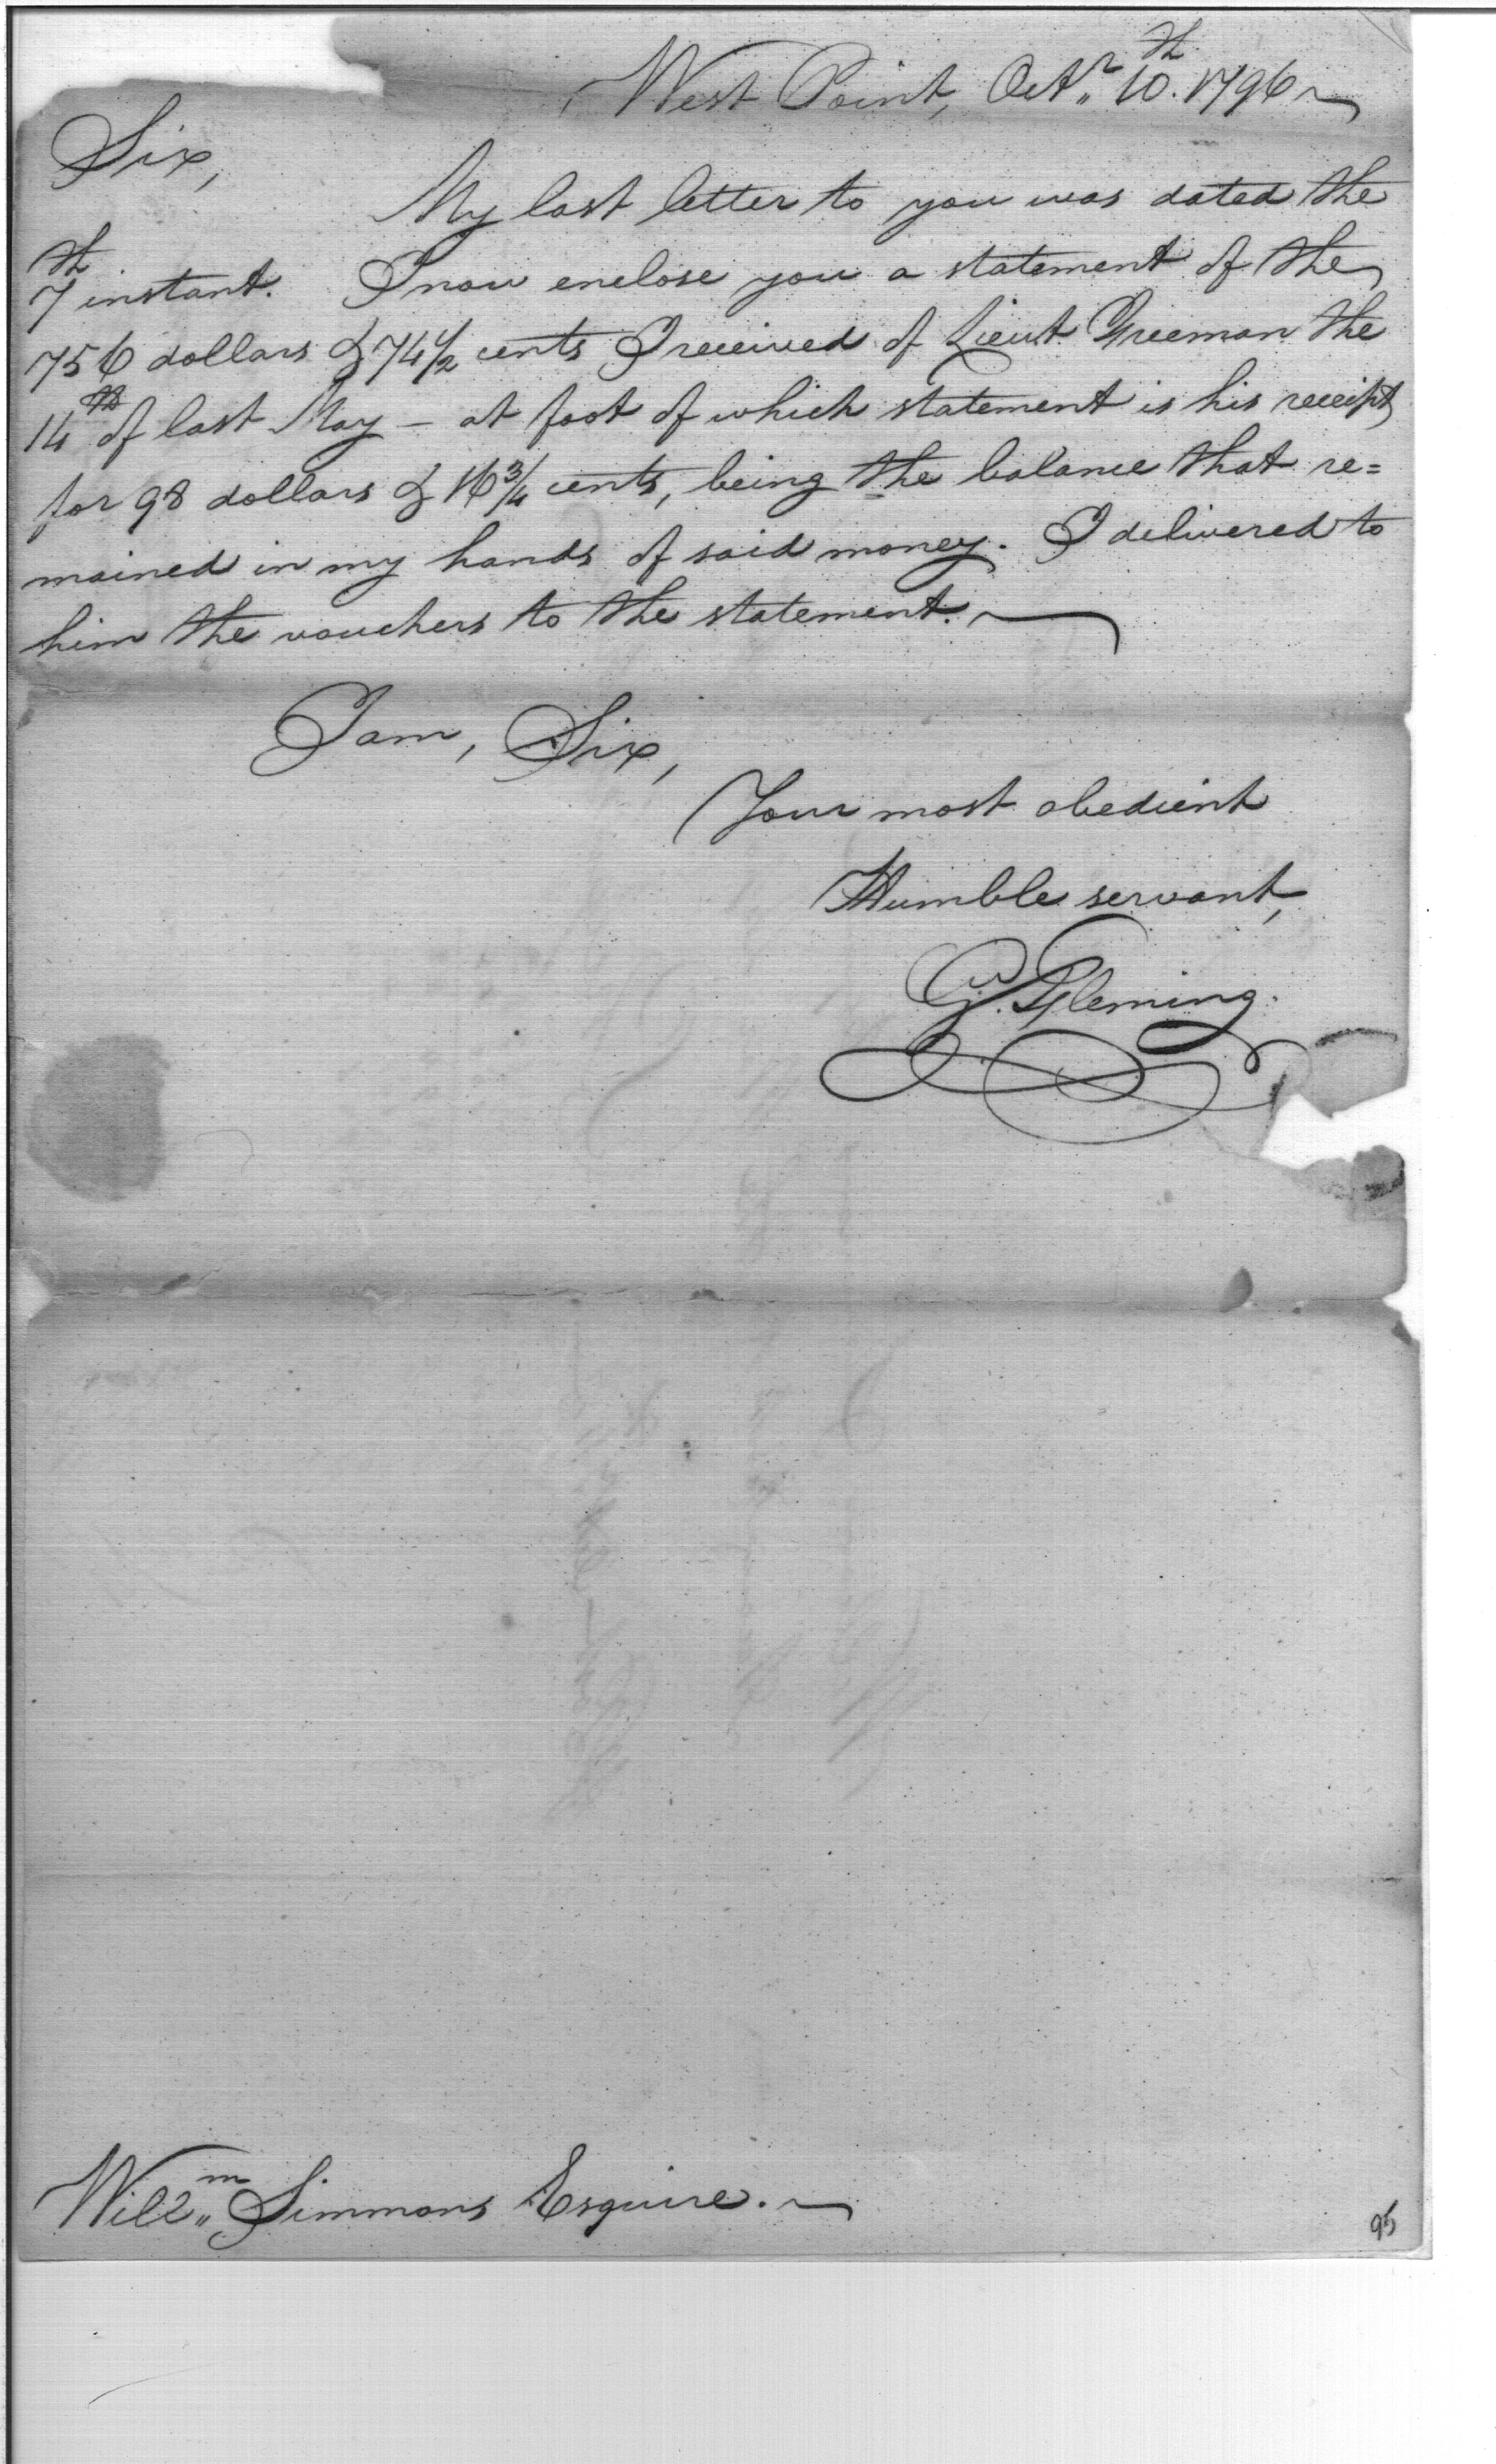 West Point, Octr. 10th. 1796
Sir,
My last letter to you was dated the
7th instant. I now enclose you a statement of the
756 dollars & 74 1/2 cents I received of Lieut. Greeman the
14th of last May – at foot of which statement is his receipt
for 98 dollars & 16 3/4 cents, being the balance that re=
mained in my hands of said money. I delivered to
him the vouchers to the statement.
I am, Sir,
Your most obedient
Humble servant,
G. Fleming.
Willm. Simmons Esquire.
95